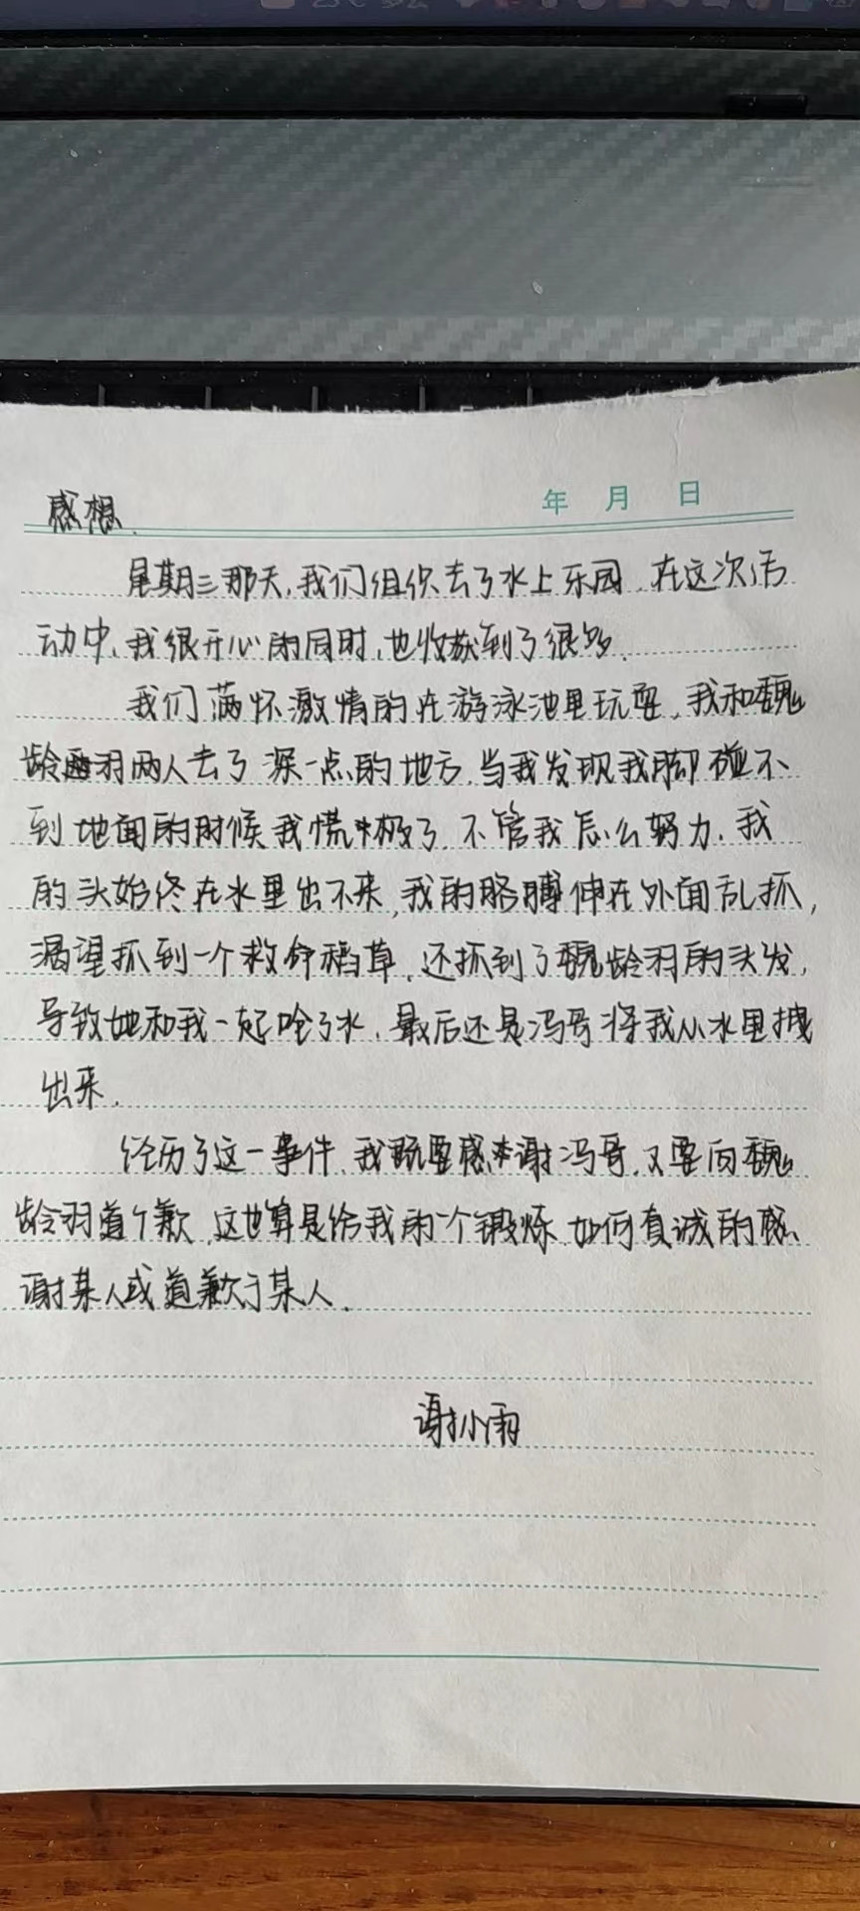 年 月 日
感想.
星期三那天,我们组织去了水上乐园.在这次活
动中,我很开心的同时,也收获到了很多.
我们满怀激情的在游泳池里玩耍,我和魏
龄羽两人去了深一点的地方.当我发现我脚碰不
到地面的时候我慌极了.不管我怎么努力.我
的头始终在水里出不来,我的胳膊伸在外面乱抓,
渴望抓到一个救命稻草.还抓到了魏龄羽的头发,
导致她和我一起呛了水.最后还是冯哥将我从水里拽
出来.
经历了这一事件.我既要感谢冯哥.又要向魏
龄羽道个歉,这也算是给我的一个锻炼.如何真诚的感
谢某人或道歉于某人.
谢小雨